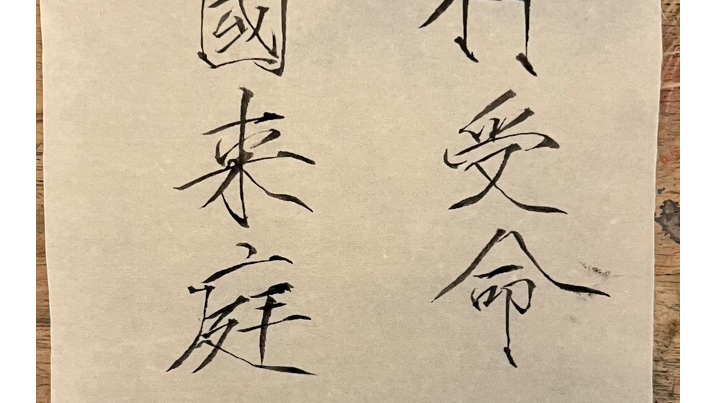 受命
國来庭